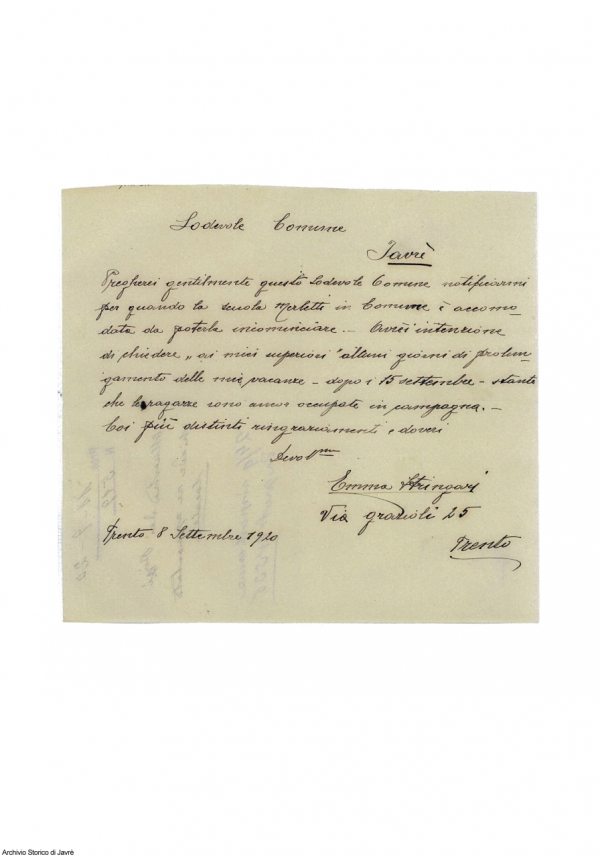 Lodevole Comune
Javrè
Pregherei gentilmente questo Lodevole Comune notificarmi
per quando la scuola Merletti in Comune è accomo-
data da poterla incominciare. - Avrei intenzione
di chiedere „ ai miei superiori " alcuni giorni di prolun-
gamento delle mie vacanze - dopo i 15 settembre - stante
che le ragazze sono ancor occupate in campagna. -
Coi più distinti ringraziamenti e doveri
Emma Stringari
Via grazioli 25
Trento 8 Settembre 1920
Trento
Archivio Storico di Javrè